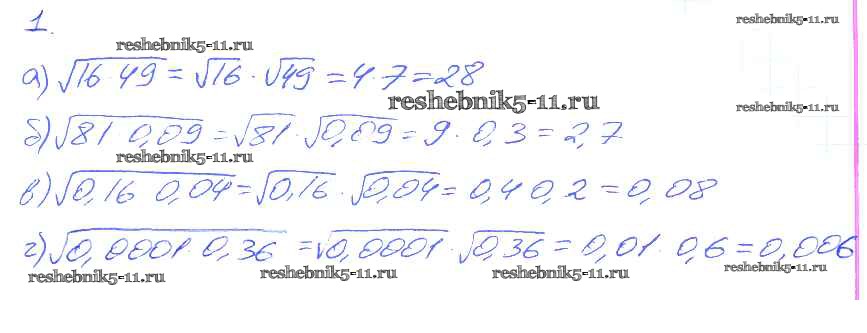 1.
reshebnik5-11.ru
reshebnik5-11.ru
а) √16·49 = √16 · √49 = 4·7 = 28
reshebnik5-11.ru
reshebnik5-11.ru
б) √81·0,09 = √81 · √0,09 = 9·0,3 = 2,7
reshebnik5-11.ru
в) √0,16 0,04 = √0,16 · √0,04 = 0,4 0,2 = 0,08
г) √0,0001·0,36 = √0,0001 · √0,36 = 0,01·0,6 = 0,006
reshebnik5-11.ru
reshebnik5-11.ru
reshebnik5-11.ru
reshebnik5-11.ru